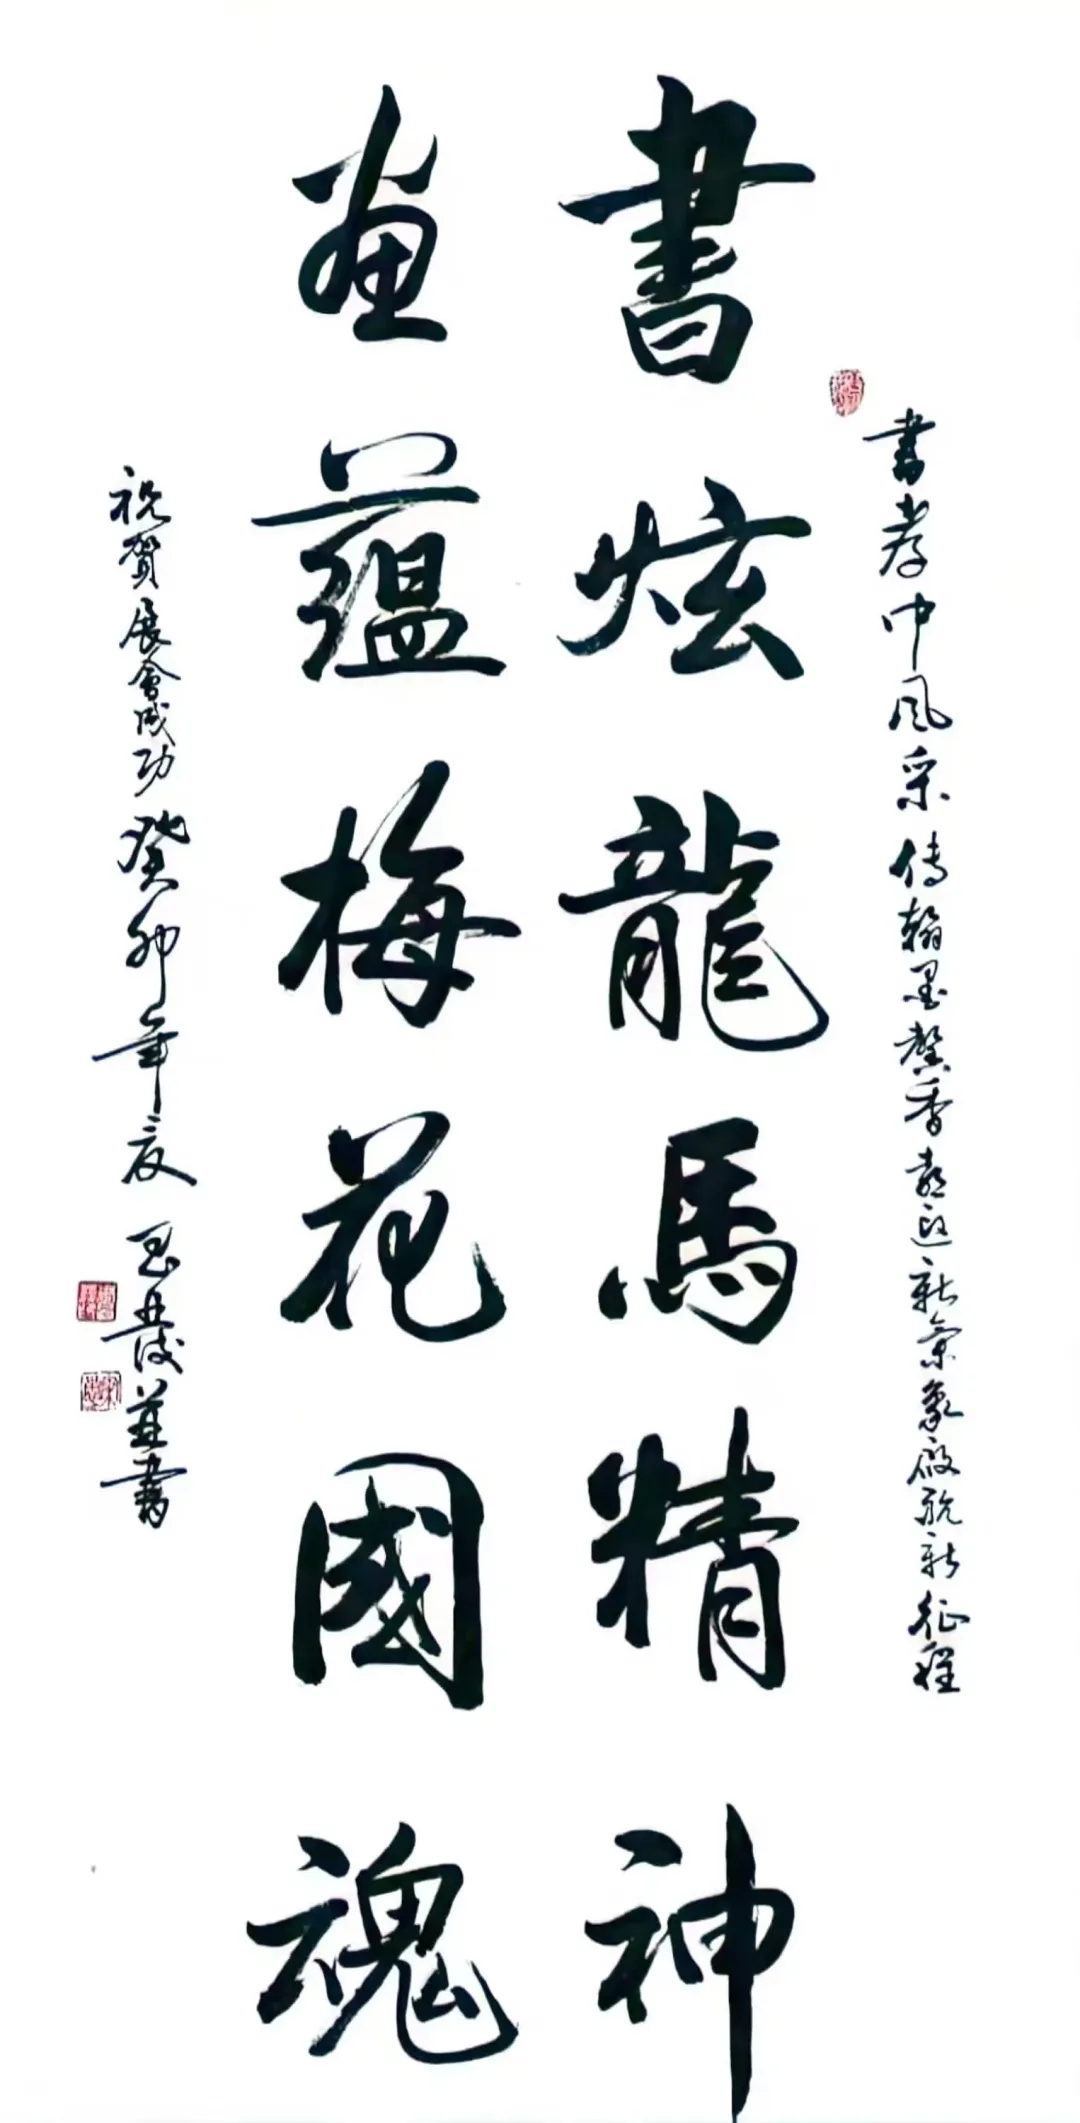 書孝中風采傳翰墨馨香喜迎新氣象啟航新征程
書炫龍馬精神
畫蘊梅花國魂
祝賀展會成功癸卯年夏 並書